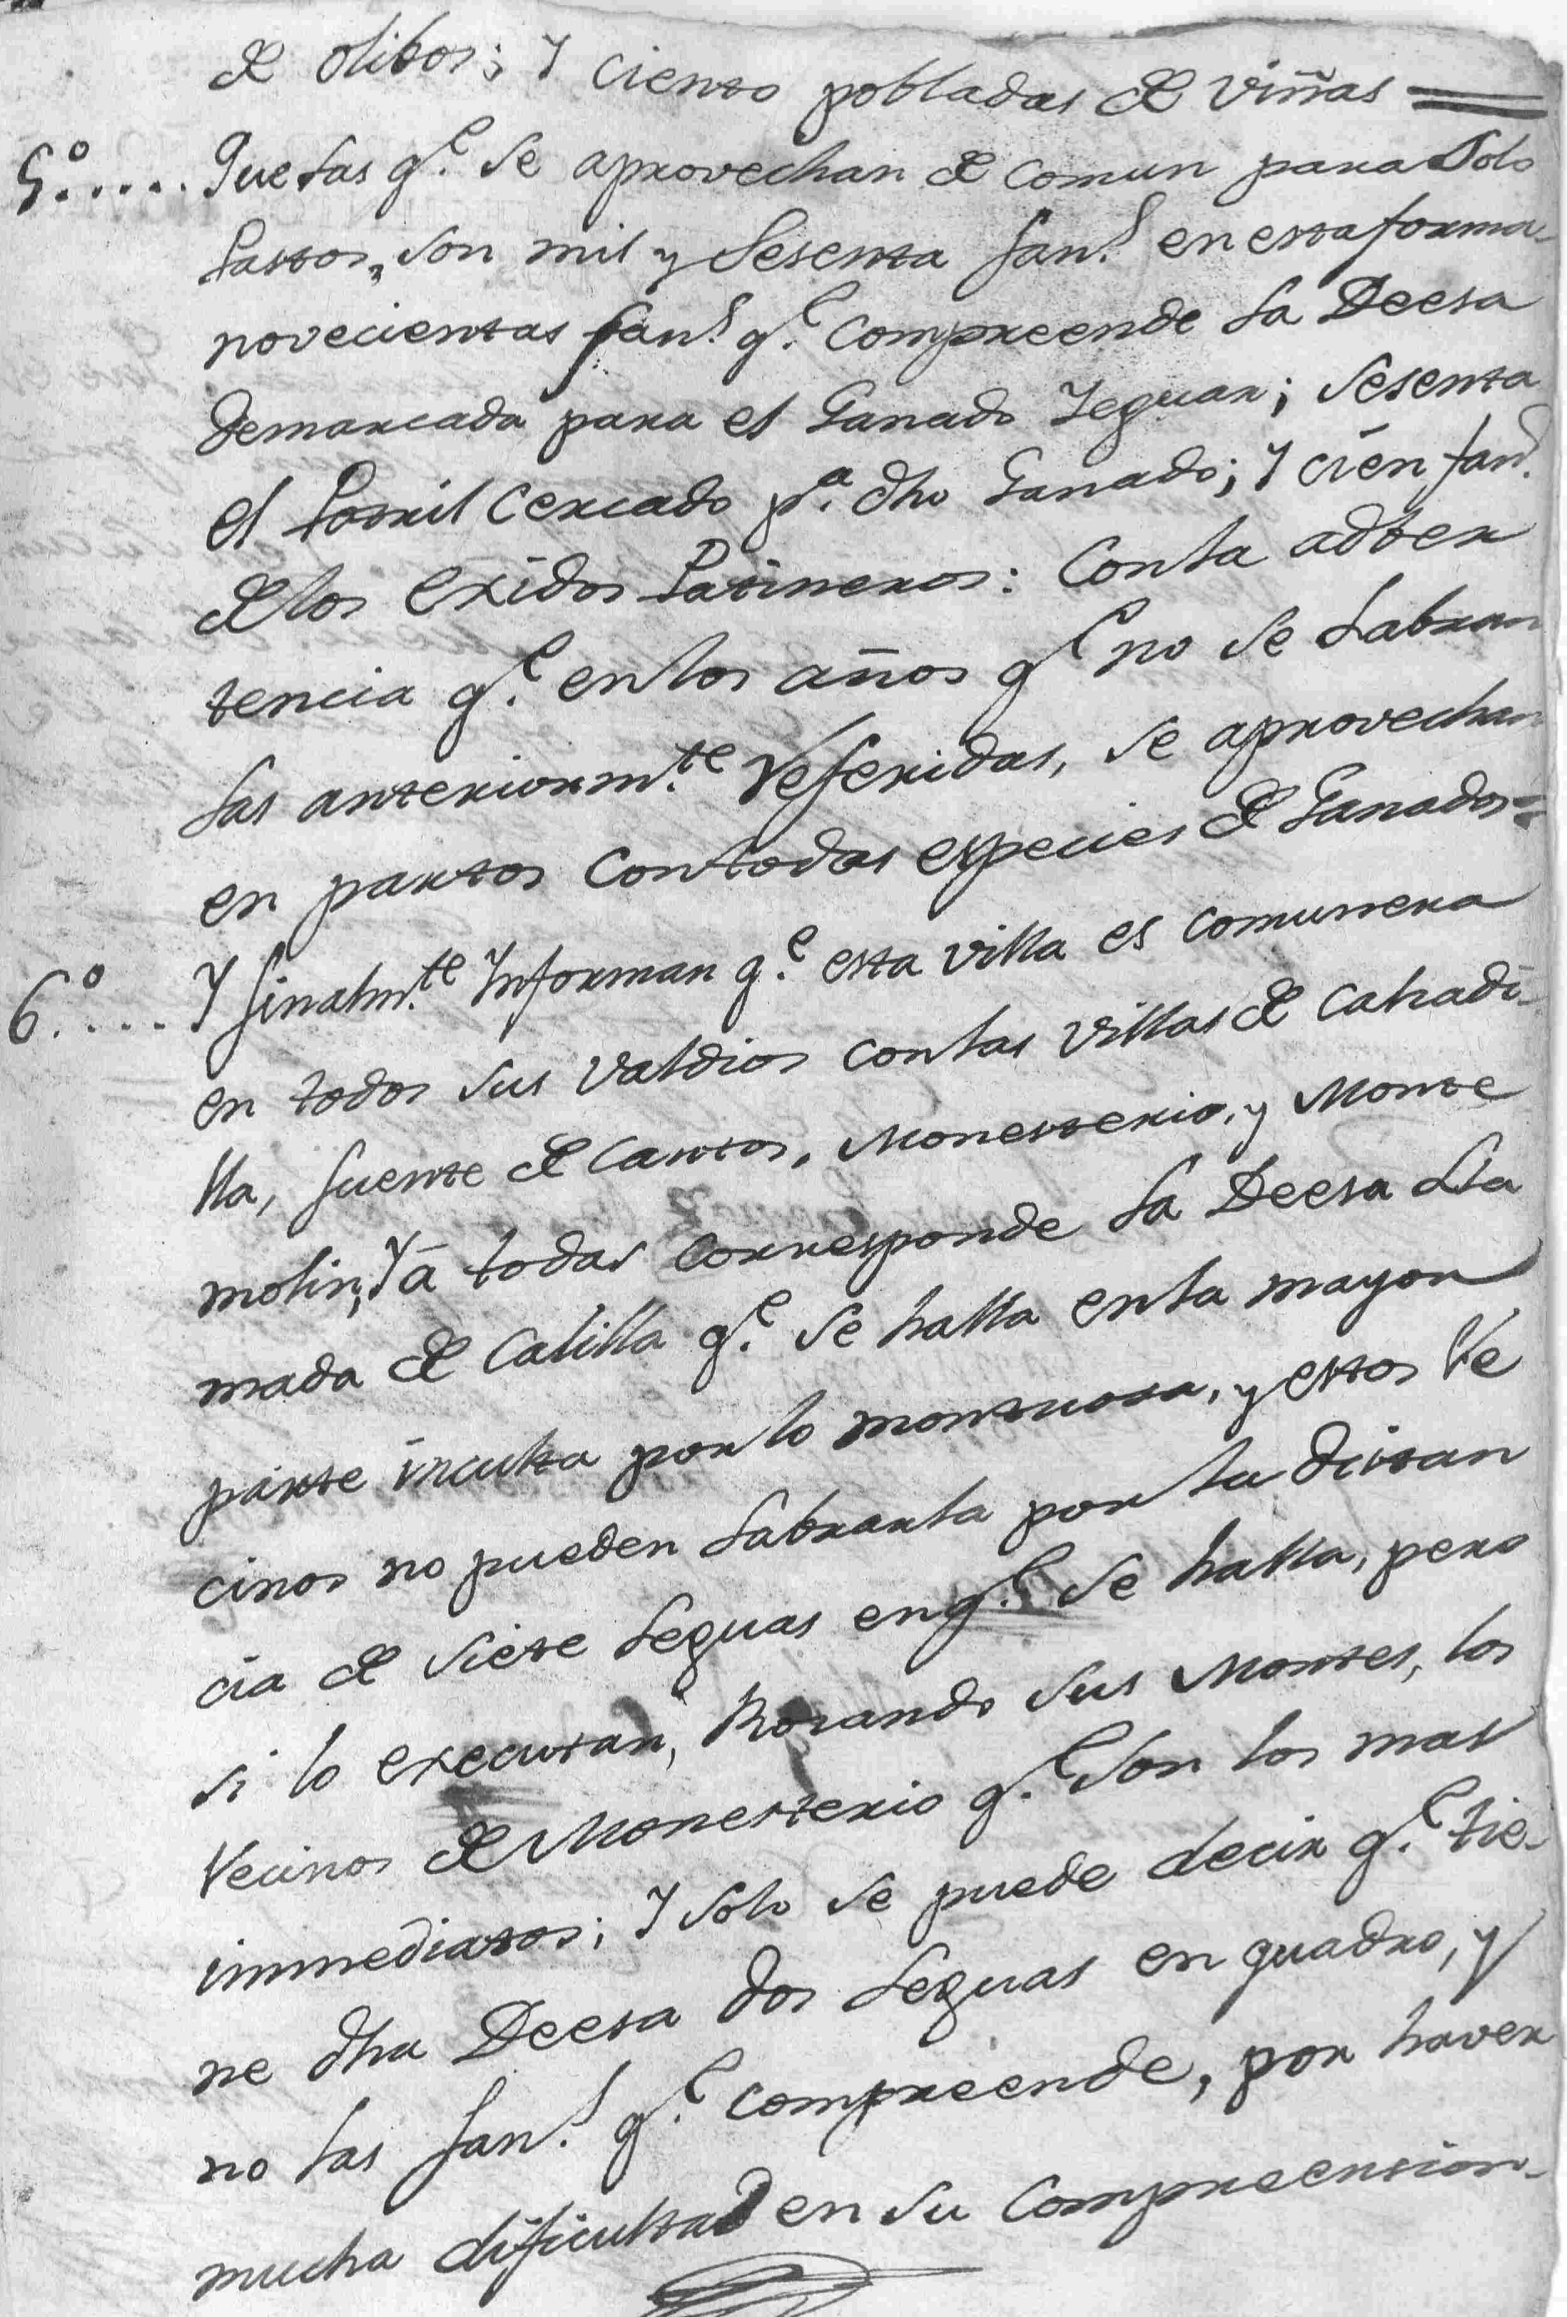 de olibos; Y ciento pobladas de viñas =
5º..... Que las q.e se aprovechan de comun para solo
Pastos, son mil y sesenta fan.s en esta forma
novecientas fan.s q.e compreende la Deesa
demarcada para el Ganado Yeguar; sesenta
el Potril cercado p.a dho Ganado; Y cien fan.s
de los exidos Patineros: Con la adber
tencia q.e en los años q.e no se labran
las anteriorm.te referidas, se aprovechan
en pastos con todas especies de Ganados =
6º.... Y finalm.te Informan q.e esta villa es comunera
en todos sus valdios con las villas de Calzadi-
lla, fuente de Cantos, Monesterio, y Monte
molin; Y á todas corresponde la Deesa Lla
mada de Calilla q.e se halla en la mayor
parte inculta por lo montuosa, y estos Ve
cinos no pueden labrarla por la distan
cia de siete leguas en q.e se halla, pero
si lo executan, Rozando sus Montes, los
Vecinos de Monesterio q.e son los mas
immediatos; Y solo se puede decir q.e tie-
ne dha Deesa dos leguas en quadro, y
no las fan.s q.e compreende, por haver
mucha dificultad en su compreension-